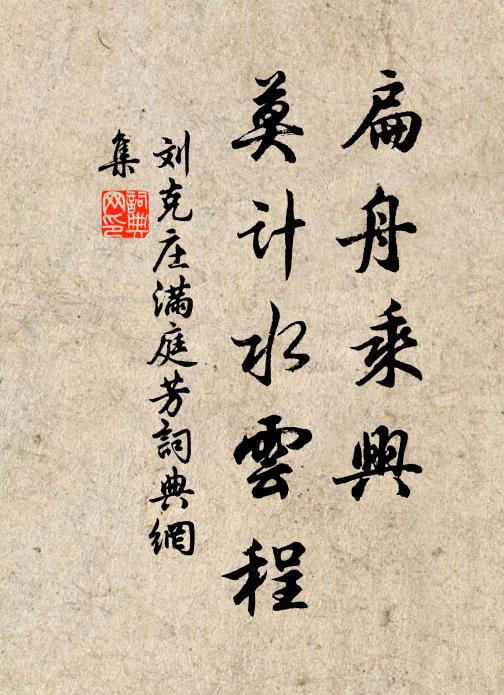 扁舟乘興
莫计水雲程
刘克庄滿庭芳詞典網
集
詞典网印